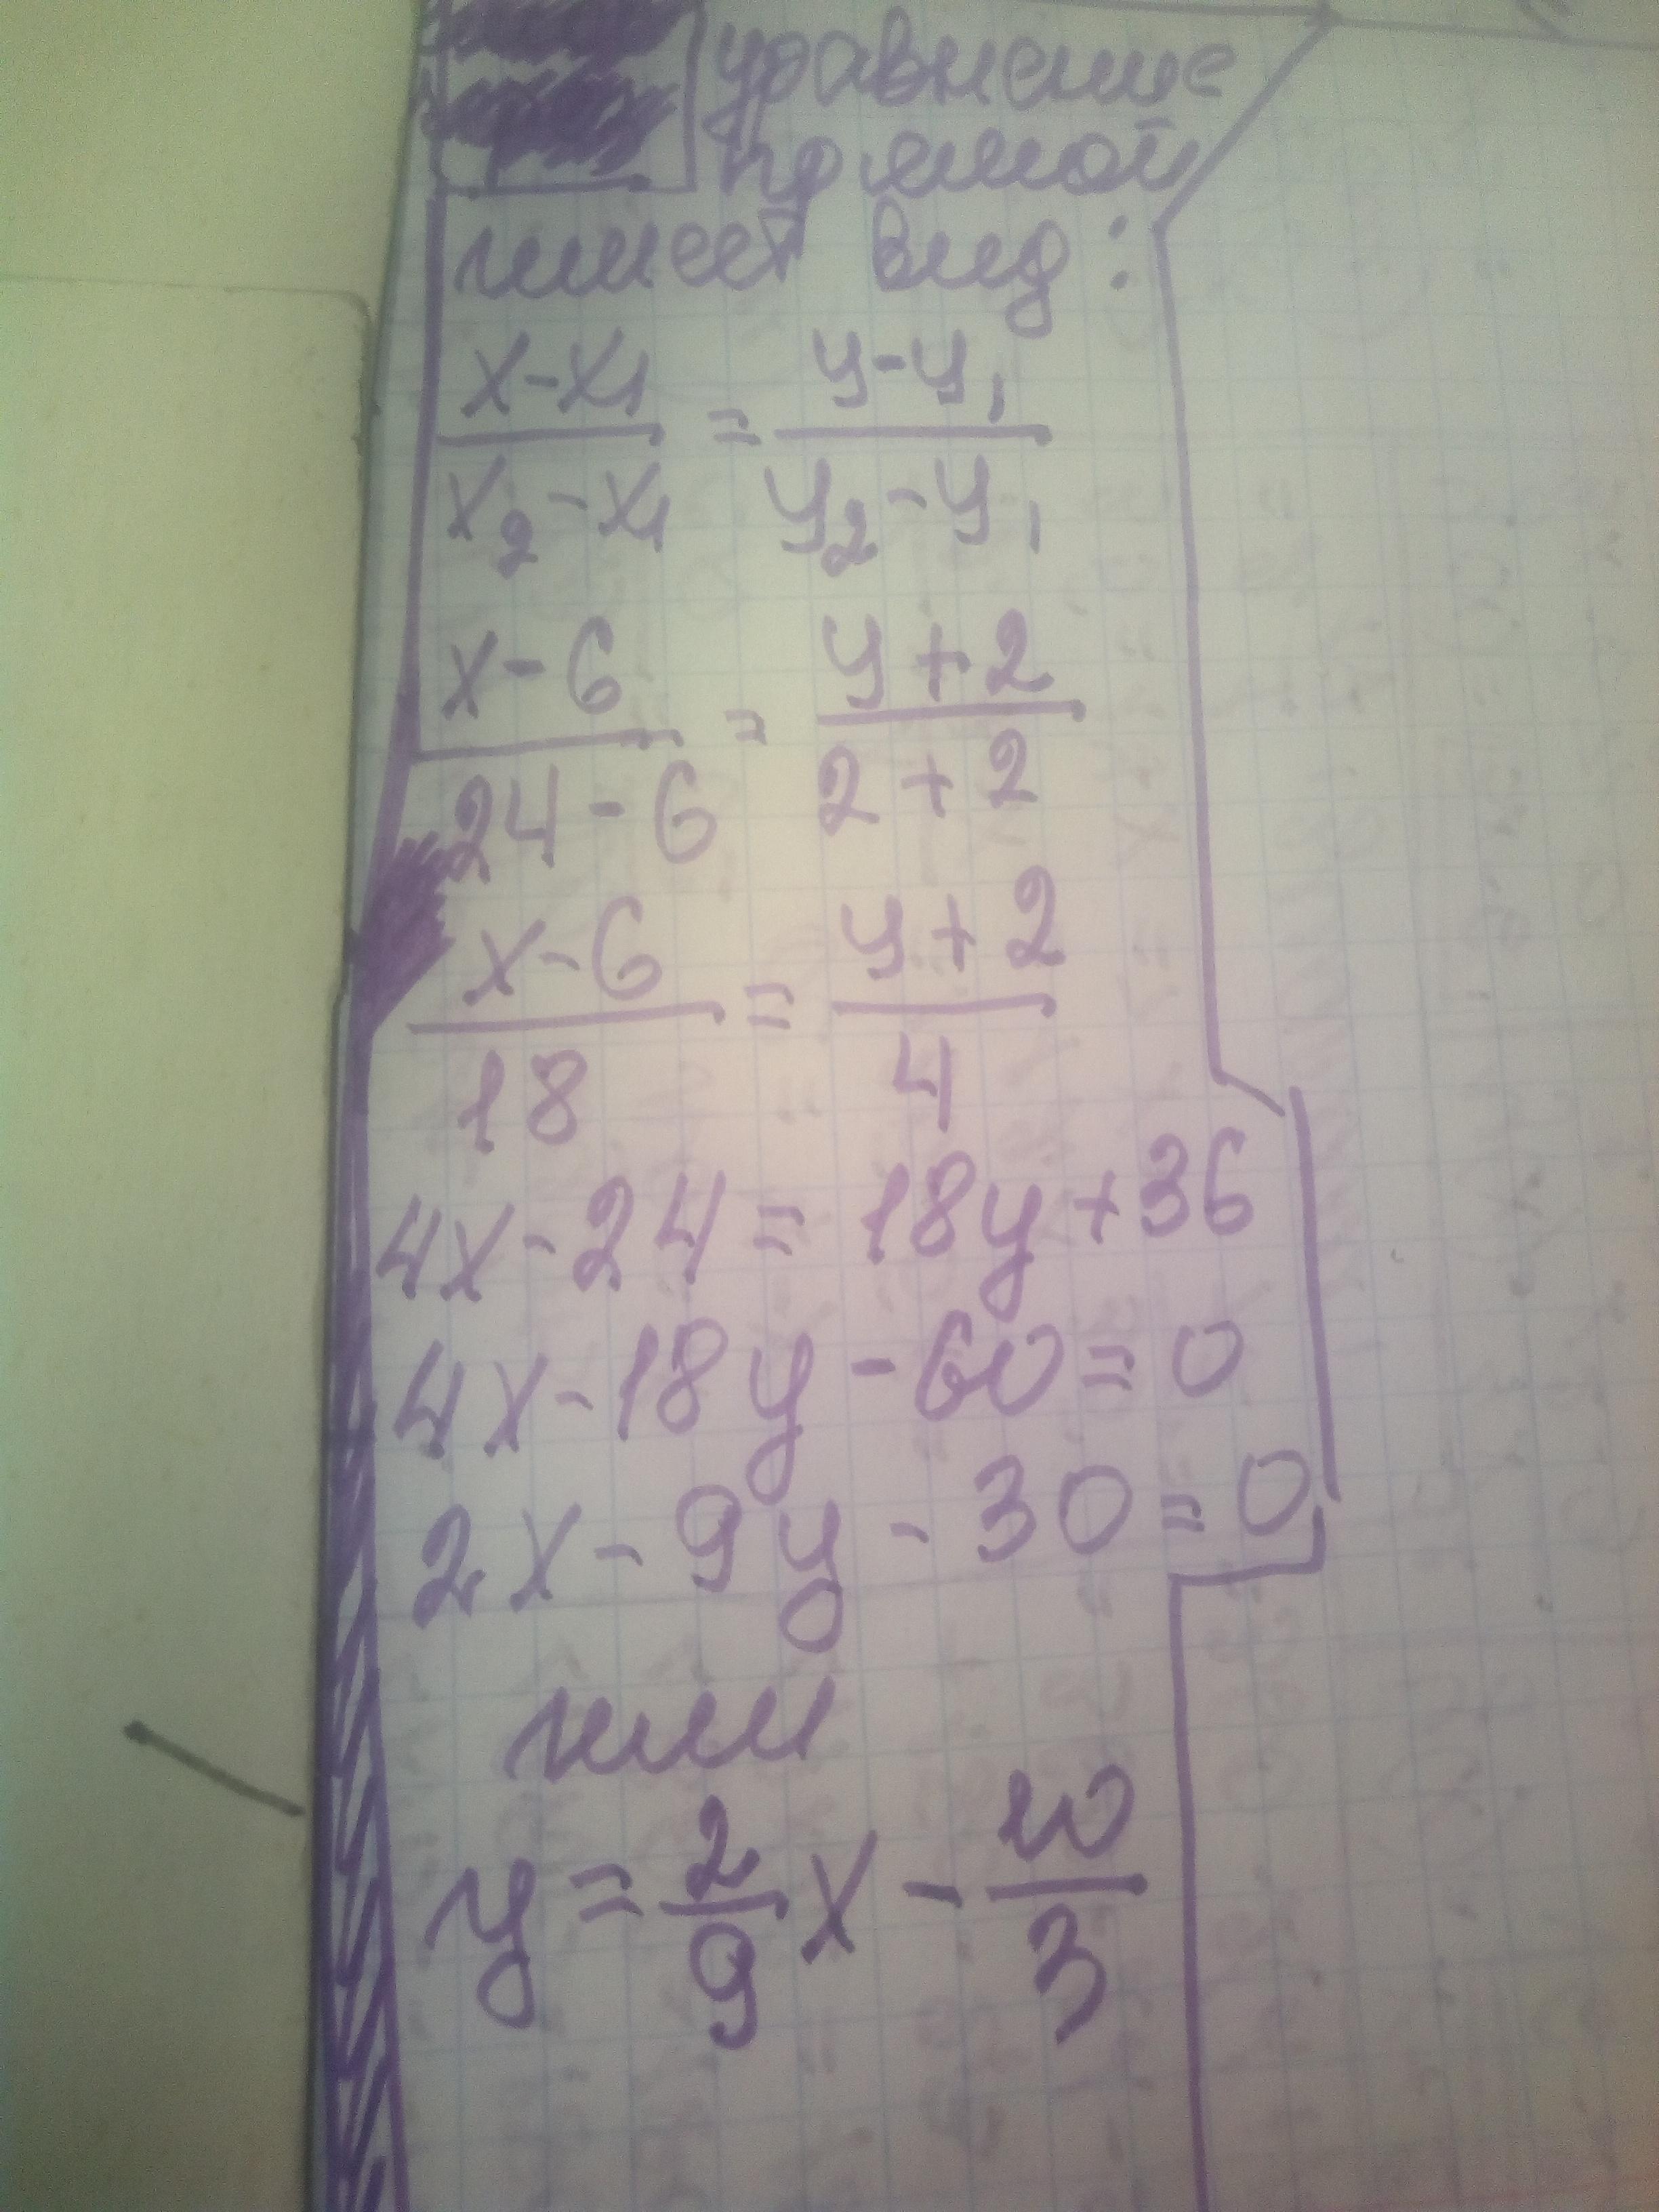 уравнение
прямой
имеет вид:
x-x₁ = y-y₁
x₂-x₁ y₂-y₁
x-6 = y+2
24-6 2+2
x-6 = y+2
18 4
4x-24=18y+36
4x-18y-60=0
2x-9y-30=0
или
y=2/9x-10/3